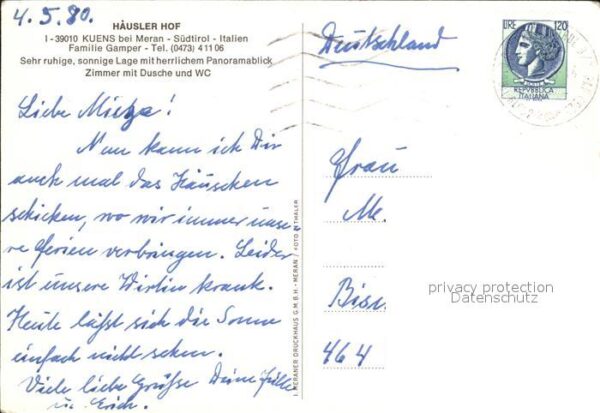 4.5.80.
HÄUSLER HOF
I -39010 KUENS bei Meran - Südtirol - Italien
Familie Gamper - Tel. (0473) 41106
Sehr ruhige, sonnige Lage mit herrlichem Panoramablick
Zimmer mit Dusche und WC
Liebe Mietza!
Nun kann ich Dir
auch mal das Häuschen
schicken, wo wir immer unse-
re Ferien verbringen. Leider
ist unsere Wirtin krank.
Heute läßt sich die Sonne
einfach nicht sehen.
Viele liebe Grüße Deine
u. Erich.
I. MERANER DRUCKHAUS G.M.B.H. - MERAN / FOTO
Deutschland
LIRE 120
REPVBBLICA
ITALIANA
Frau
Me.
464
privacy protection
Datenschutz